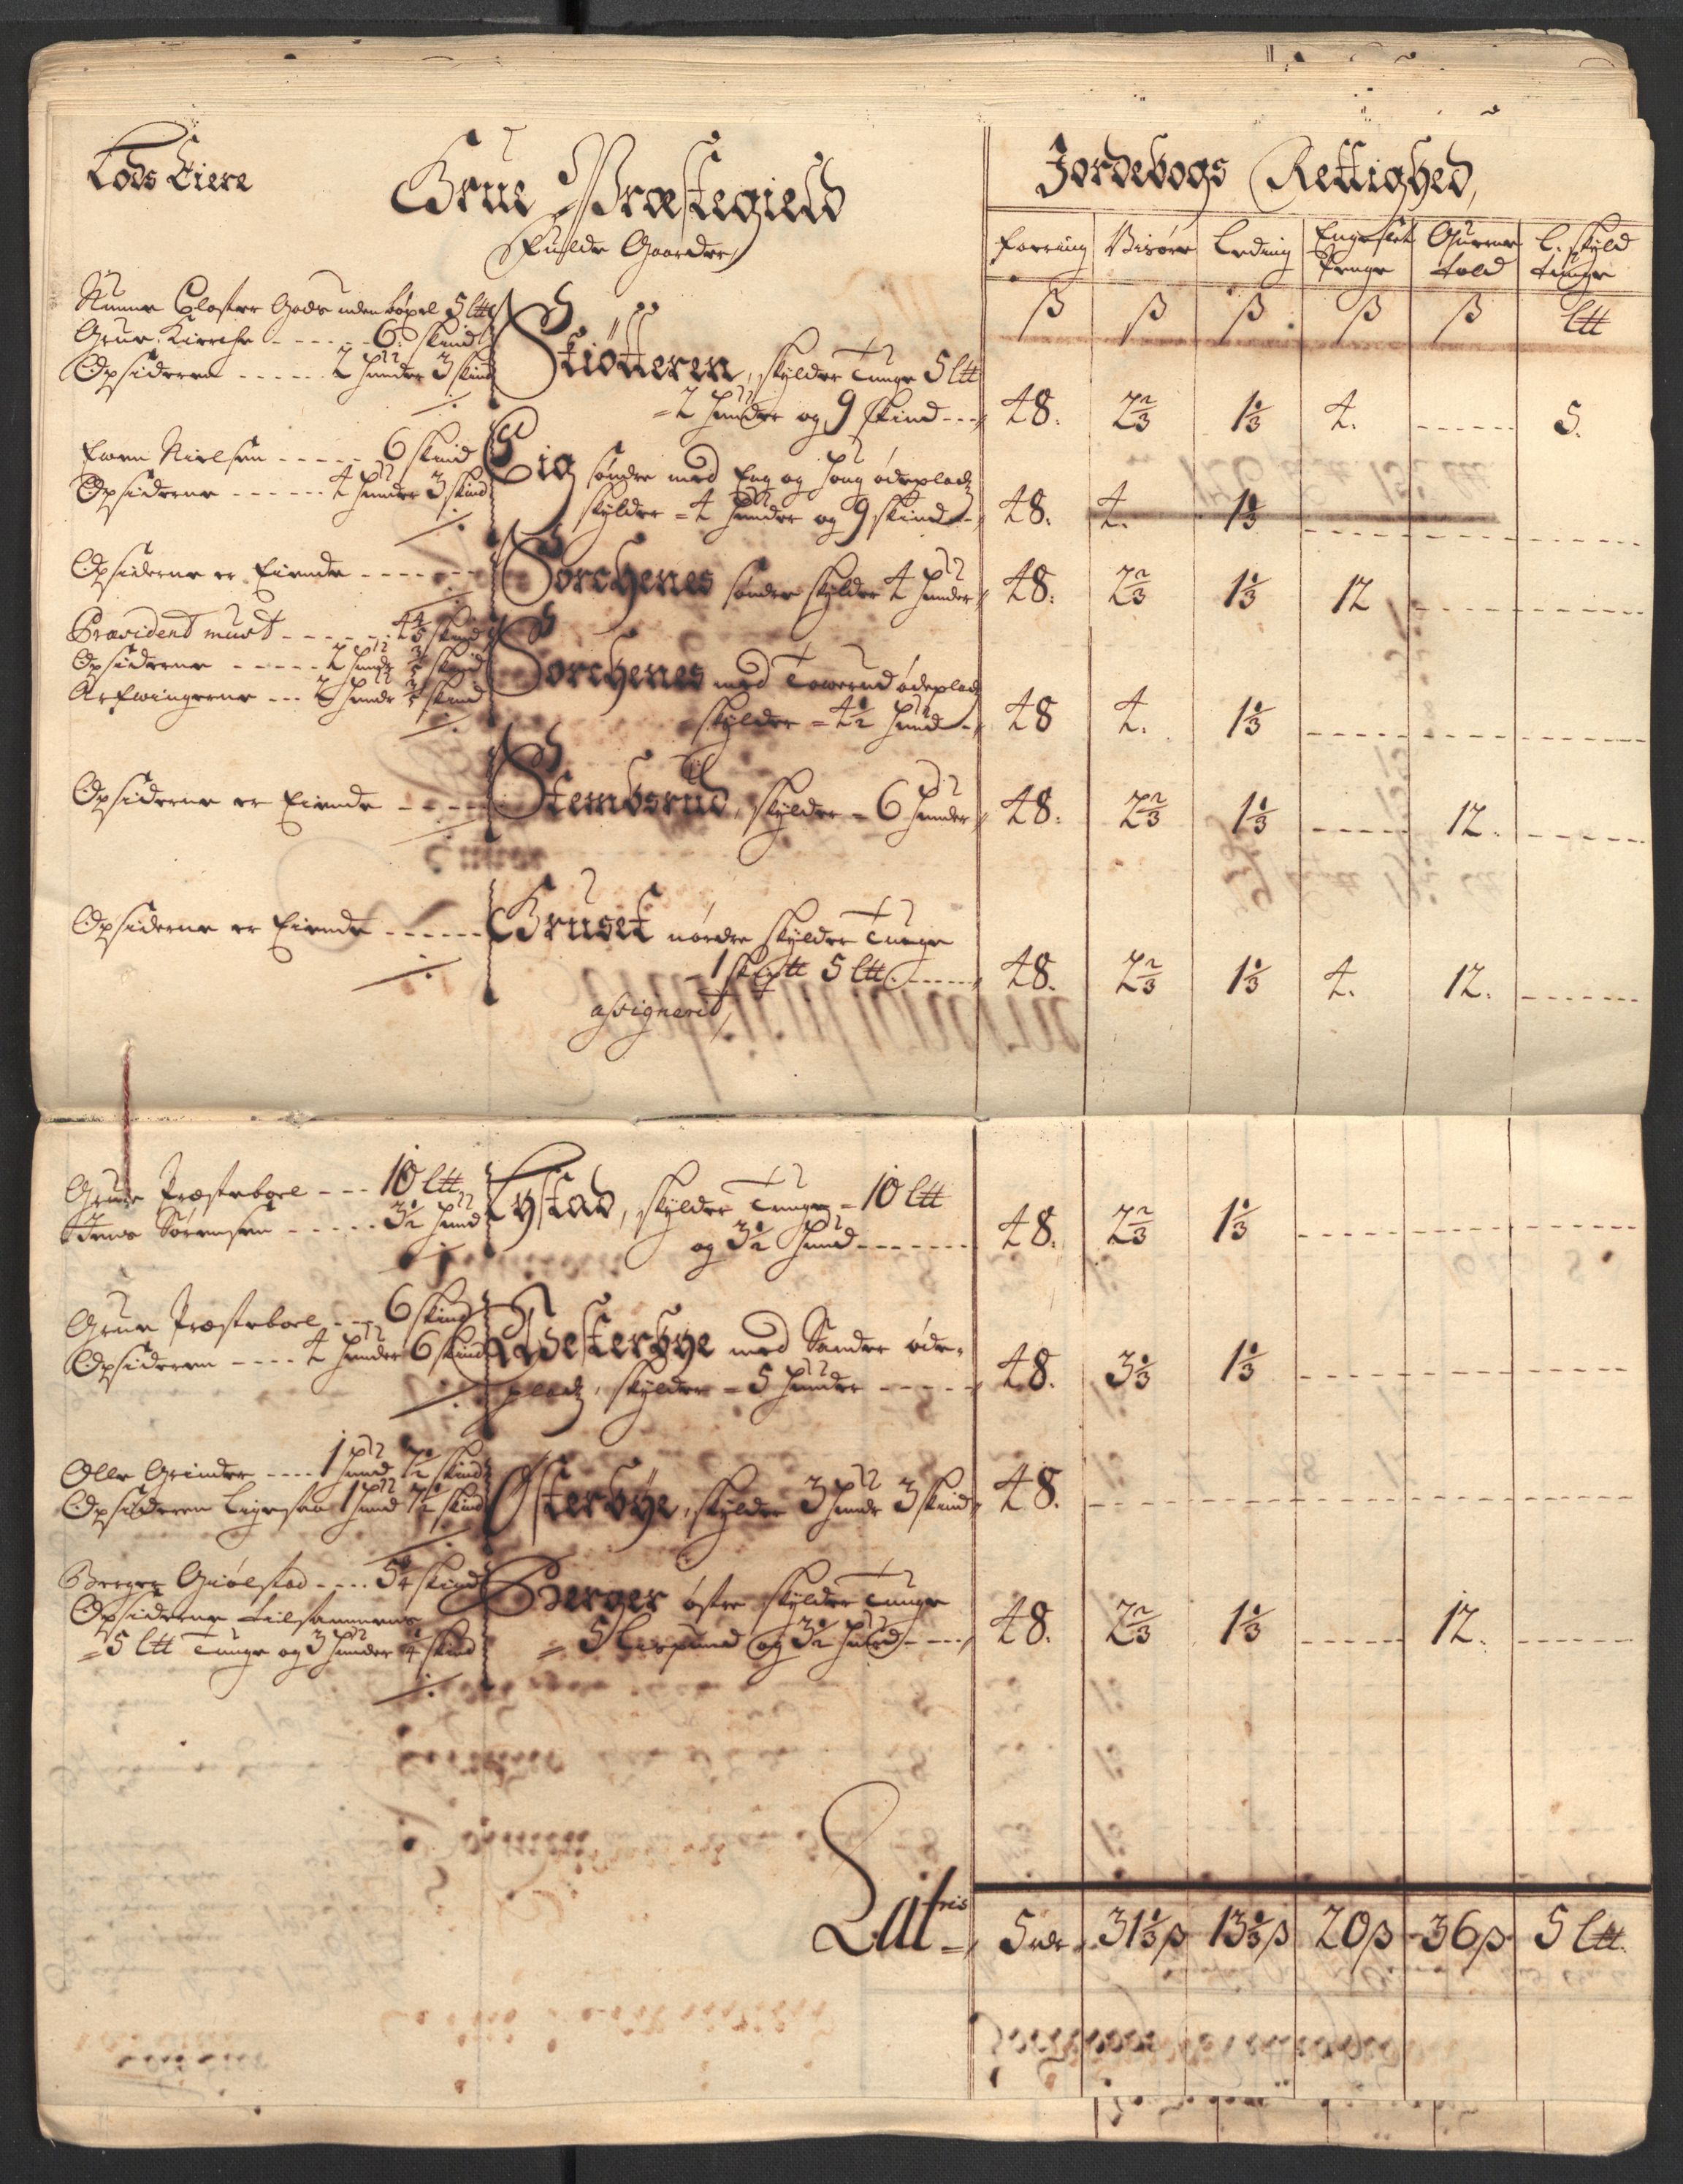 Lods Eiere
Grue Præstegield
Fulde Gaarder
Jordebogs Rettighed,
foering Visøre Leding Engeslet Penge Querne told L: skyld tunge
ß ß ß ß ß Ltt
Nunne Closter Gods uden bøxel 5 Ltt
Grue Kirche - - - - 6 skind
Opsiderne - - - - - 2 huder 3 skind
Skiøtteren, skylder Tunge 5 Ltt
= 2 huder og 9 skind - - - 48. 2 2/3 1 1/3 4. - - - - - 5.
Even Nielsen - - - - - 6 skind
Opsiderne - - - - - 4 huder 3 skind
Eig søndre med Eng og houg ødepladz
skylder = 4 huder og 9 skind - 48. 4. 1 1/3 - - - - -
Opsiderne er Eiende - - - - - -
Sorchenes søndre skylder 4 huder 48. 2 2/3 1 1/3 12 - - - - -
Præsident must - - - - - 4 4/5 skind
Opsiderne - - - - - 2 huder 3/5 skind
Arfvingerne - - - 2 huder 3/5 skind
Sorchenes med Tovernd ødepladz
skylder = 4 1/2 hud - 48 4. 1 1/3 - - - - -
Opsiderne er Eiende - - - -
Stembsrud, skylder = 6 huder 48. 2 2/3 1 1/3 - - - - 12. - - - - -
Opsiderne er Eiende - - - - - -
Gruset nordre skylder Tunge
1 skiptt 5 Ltt - - - - - 48. 2 2/3 1 1/3 4. 12. - - - - -
assignerit
Grue Præsteboel - - - 10 Ltt
Jens Sørensen - - - - - 3 1/2 hud
Lystad, skylder Tunge = 10 Ltt
og 3 1/2 hud - - - - - - - 48. 2 2/3 1 1/3 - - - - -
Grue Præsteboel - - - 6 skind
Opsideren - - - - 4 huder 6 skind
Westerbye med Sandre øde-
pladz, skylder = 5 huder - - - - - 48. 3 1/3 1 1/3 - - - - -
Olle Grinder - - - - 1 hud 7 1/2 skind
Opsideren Ligesaa 1 hud 7 1/2 skind
Østerbye, skylder 3 huder 3 skind 48. - - - - -
Berger Griølstad - - - - 5 1/4 skind
Opsiderne tilsammens
= 5 Ltt Tunge og 3 huder 3/4 skind
Berger østre skylder Tunge
= 5 Lispund og 3 1/2 hud - - - - 48. 2 2/3 1 1/3 - - - - - 12. - - - - -
Lateris = 5 rdr 31 1/3 ß 13 1/3 ß 20 ß 36 ß 5 Ltt.